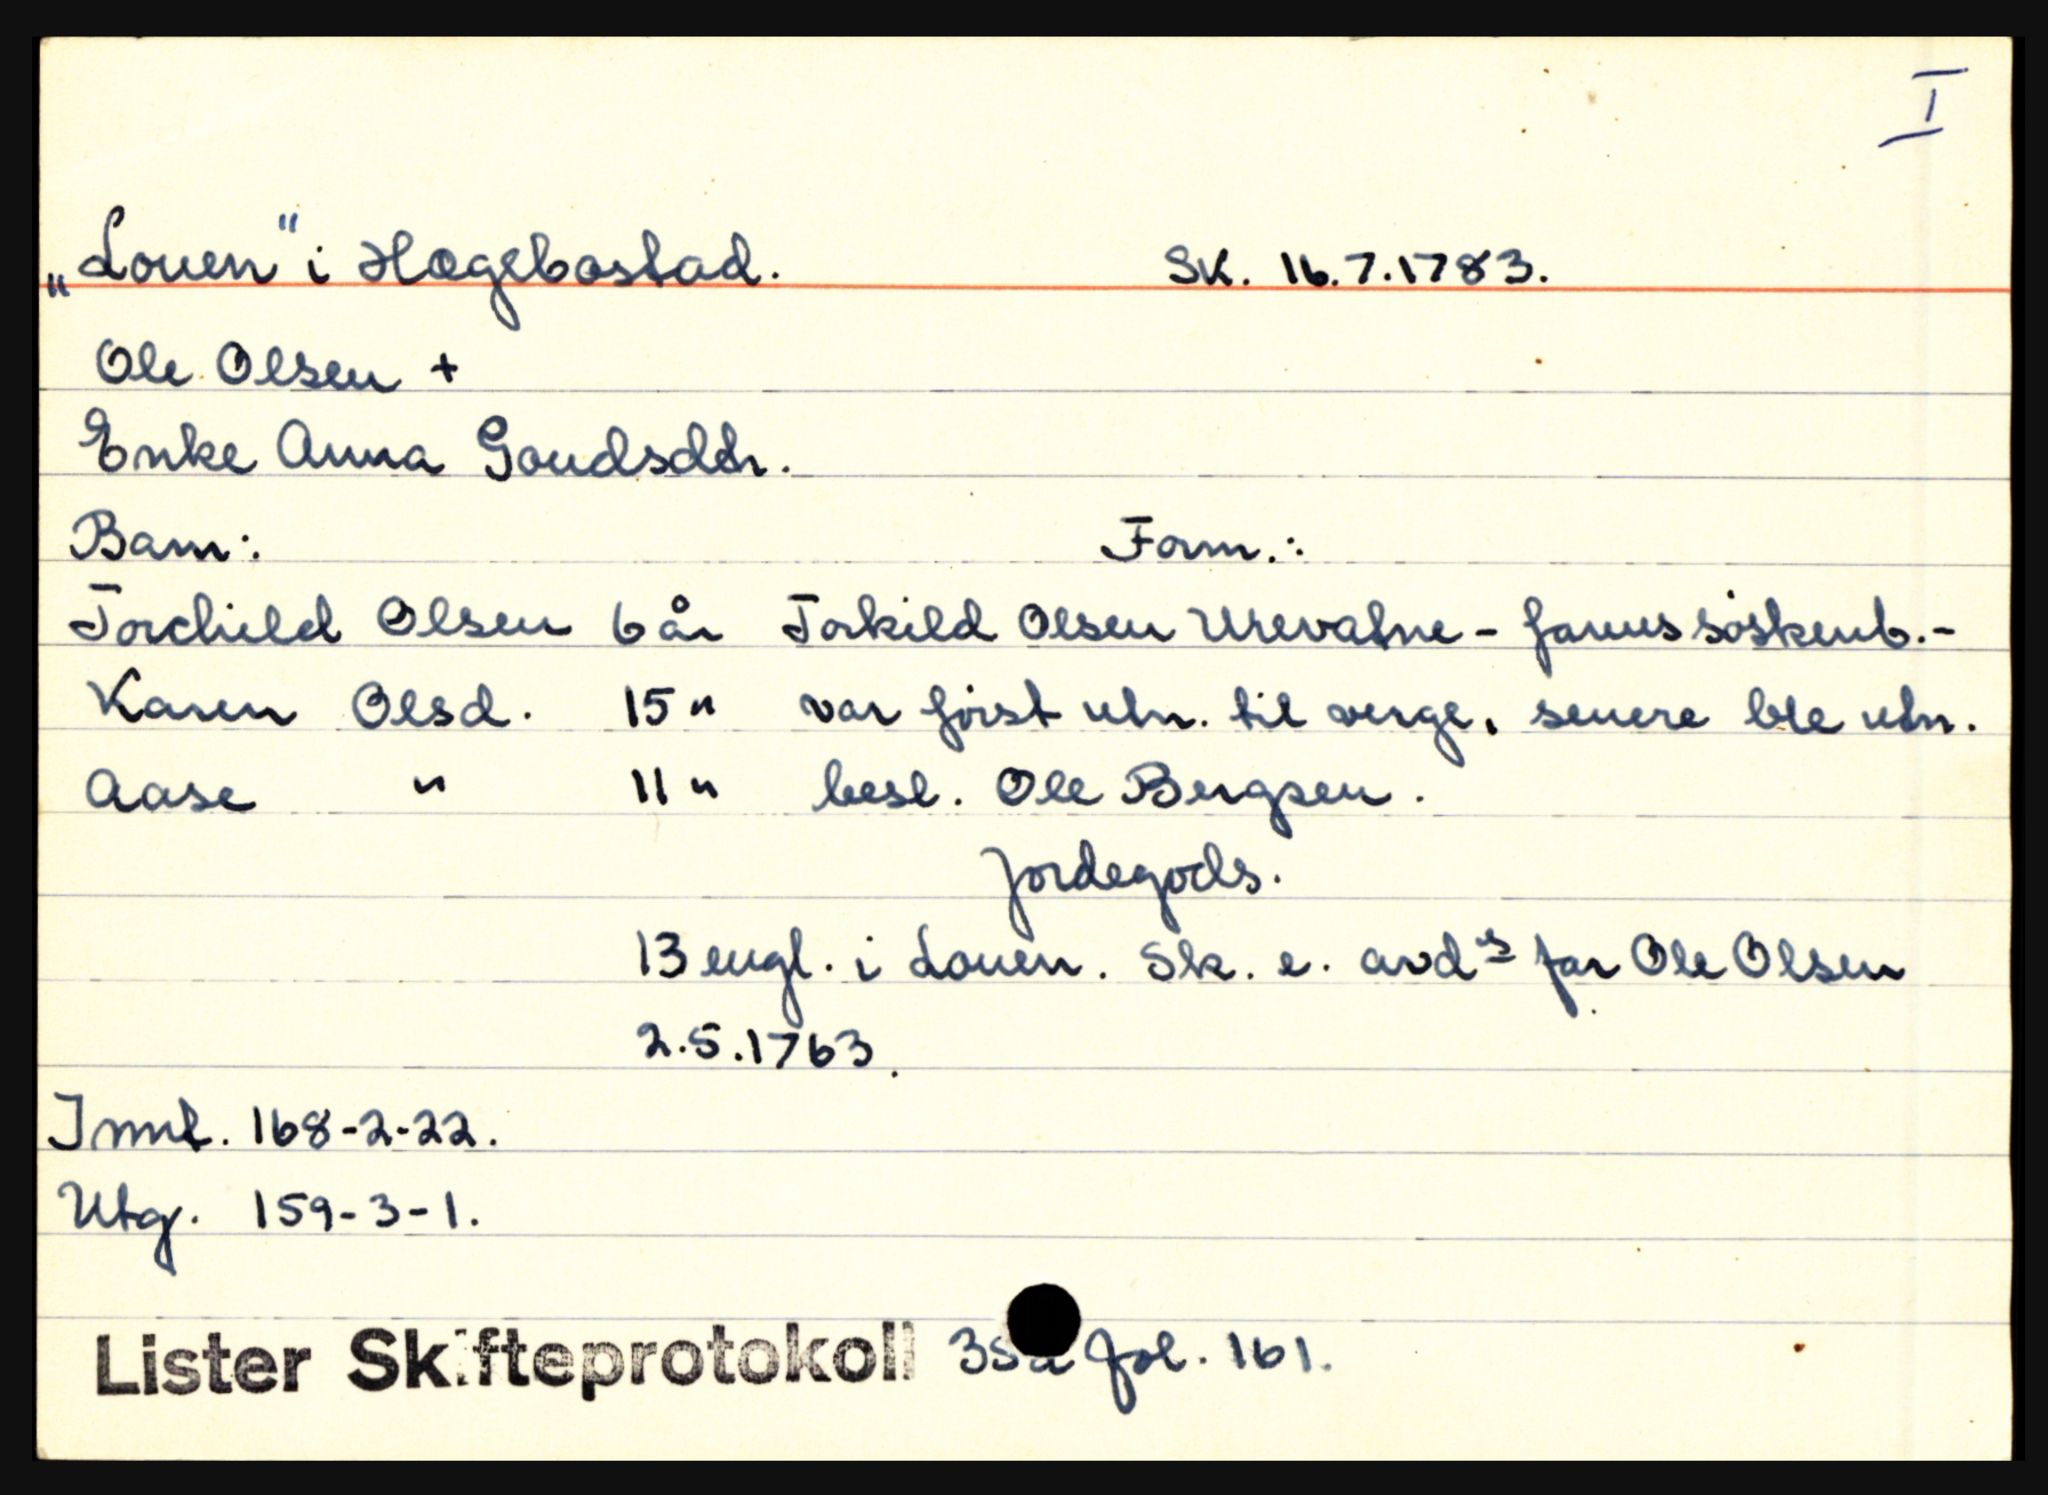 I
„Louen" i Hægebostad. Sk. 16.7.1783.
Ole Olsen +
Enke Anna Goudsdtr.
Barn: Form.:
Torchild Olsen 6 år Torkild Olsen Urevatne - farens söskenb.-
Karen Olsd. 15 " var först utn. til verge, senere ble utn.
Aase " 11 " besl. Ole Bergsen.
Jordegods.
13 engl. i Louen. Sk. e. avdˢ far Ole Olsen
2.5.1763.
Innt. 168-2-22.
Utg. 159-3-1.
Lister Skifteprotokoll fol. 161.